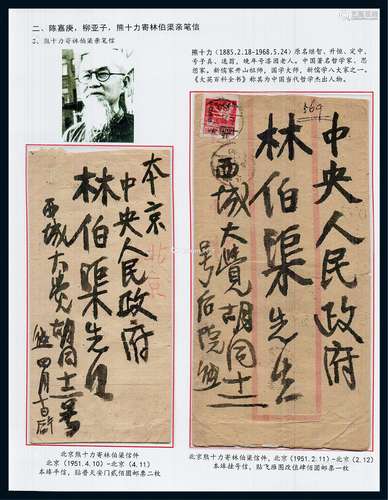 二、陈嘉庚，柳亚子，熊十力寄林伯渠亲笔信
2、熊十力寄林伯渠亲笔信
熊十力（1885.2.18-1968.5.24）原名继智、升恒、定中，
号子真、逸翁，晚年号漆园老人。中国著名哲学家、思
想家。新儒家开山祖师，国学大师，新儒学八大家之一。
《大英百科全书》称其为中国当代哲学杰出人物。
本京
中央人民政府
林伯渠先生
西城大觉胡同十二号
熊 四月十日
北京
569
中央人民政府
林伯渠先生
西城大觉胡同十二
号后院熊
北京熊十力寄林伯渠信件
北京（1951.4.10）-北京（4.11）
本埠平信，贴普天安门贰佰圆邮票二枚
北京熊十力寄林伯渠信件，北京（1951.2.11）-北京（2.12）
本埠挂号信，贴飞雁图改值肆佰圆邮票一枚